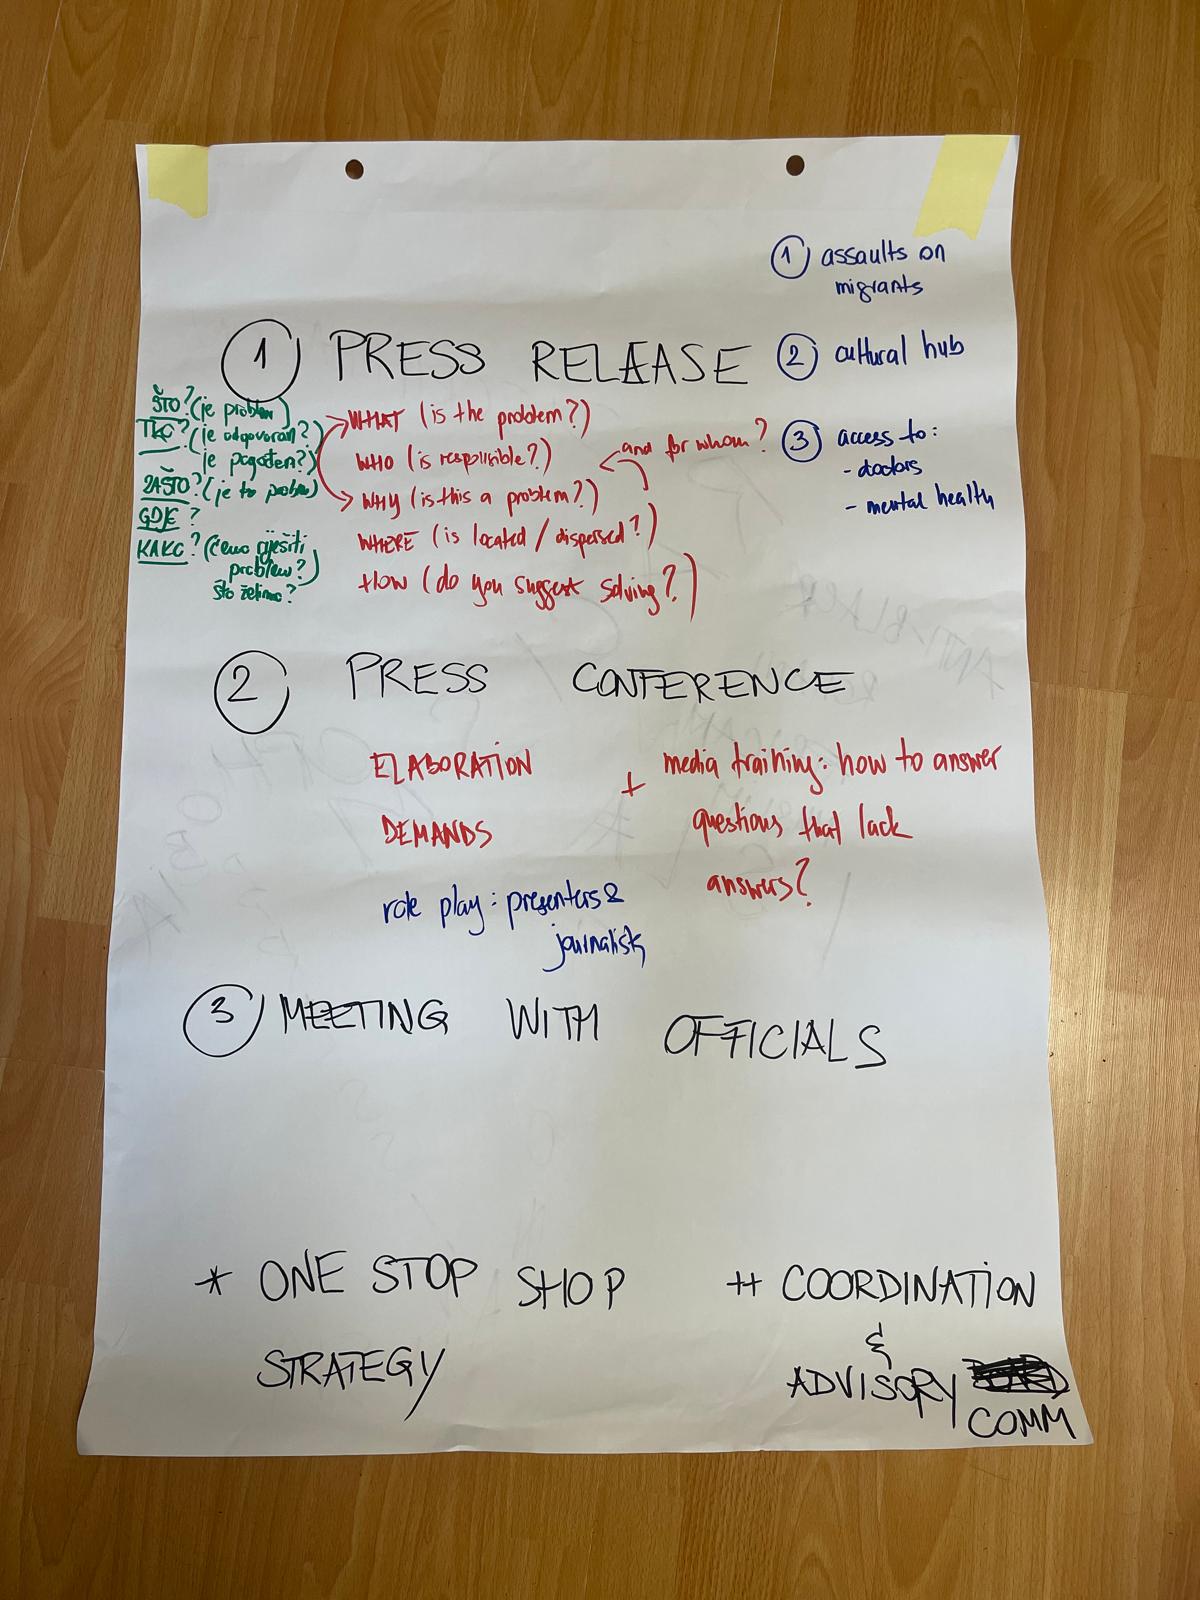 1 assaults on
migrants
2 cultural hub
3 access to:
- doctors
- mental health
1 PRESS RELEASE
ŠTO? (je problem)
TKO? (je odgovoran?)
je pogođen?)
ZAŠTO? (je to problem)
GDJE?
KAKO? (ćemo riješiti
problem?)
što želimo?
WHAT (is the problem?)
WHO (is responsible?)
and for whom?
WHY (is this a problem?)
WHERE (is located / dispersed?)
HOW (do you suggest solving?)
2 PRESS CONFERENCE
ELABORATION
DEMANDS
+ media training: how to answer
questions that lack
answers?
role play: presenters &
journalists
3 MEETING WITH OFFICIALS
* ONE STOP SHOP
STRATEGY
++ COORDINATION
&
ADVISORY
COMM